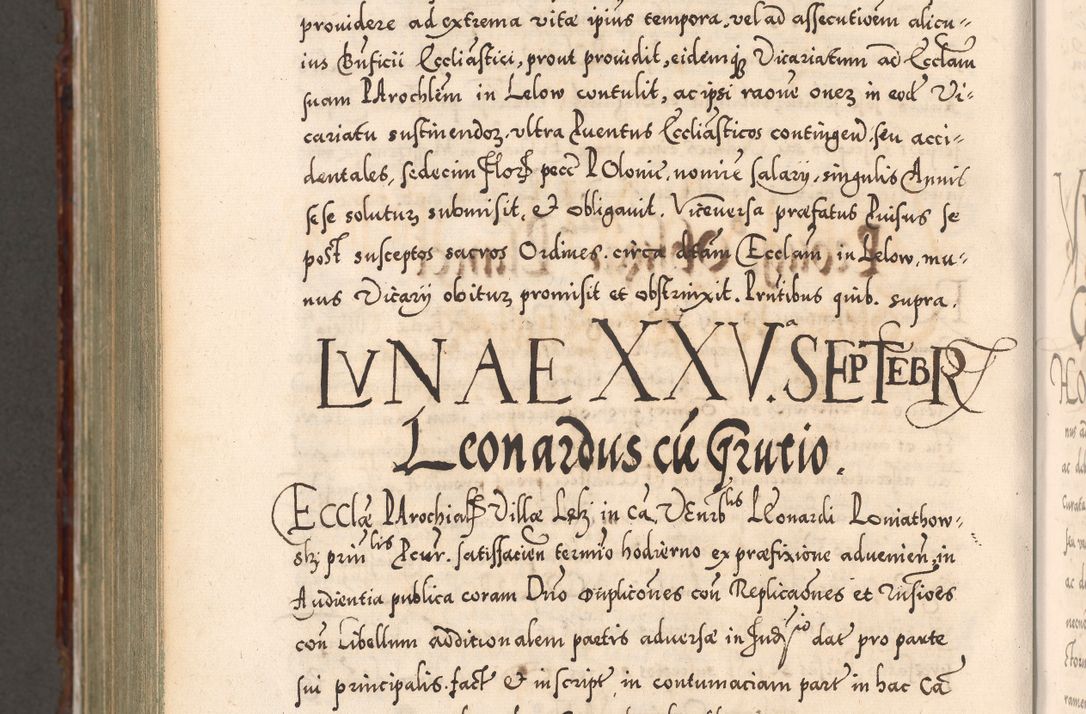 prouidere ad extrema vitæ ipius tempora, vel ad assecutioem alicu=
ius Bnficii Eccliastici, prout prouidit, eidemq3 Vicariatum ad Ecclam
suam PArochlem in Lelow contulit, ac ipsi raone onez in eod Vi=
cariatu sustinendoz, vltra Puentus Eccliasticos contingen, seu acci=
dentales, sedecim Flor pecc POlonie, nomie salarij, singulis Annis
se se soluturz submisit, et obligauit. Viceuersa præfatus Puisus se
post susceptos sacros Ordines circa dtam Ecclam in Lelow, mu=
nus Vicarij obiturz promisit et obstrinxit. Prntibus quib. supra.
LVNAE XXV.a SEPTEBR
Leonardus cū Grutio.
ECClæ PArochial Villæ in Ca, VEnrblis LEonardi Roniathow=
skj prin lis Pcur. satisfacien termio hodierno ex præfixione aduenien, in
Audientia publica coram Dno duplicões con Replicaões et
con Libellum additionalem partis aduersæ in dat pro parte
sui principalis fact et inscript, in contumaciam part in hac Ca